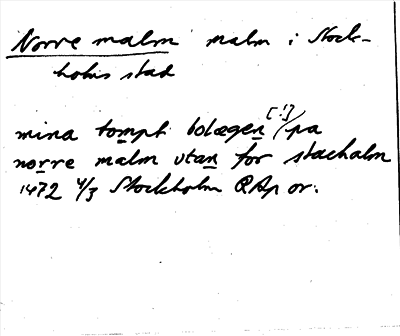 Norre malm malm i Stock-
holms stad
mina tompt belægen [!] /pa
norre malm vtan for stocholm
1472 4/3 Stockholm RAp or.